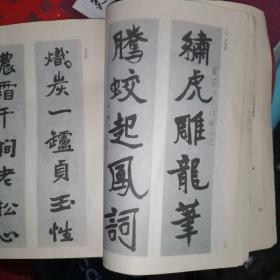 繡虎雕龍筆
騰蛟起鳳詞
熾炭一罏貞玉性
濃霜千澗老松心